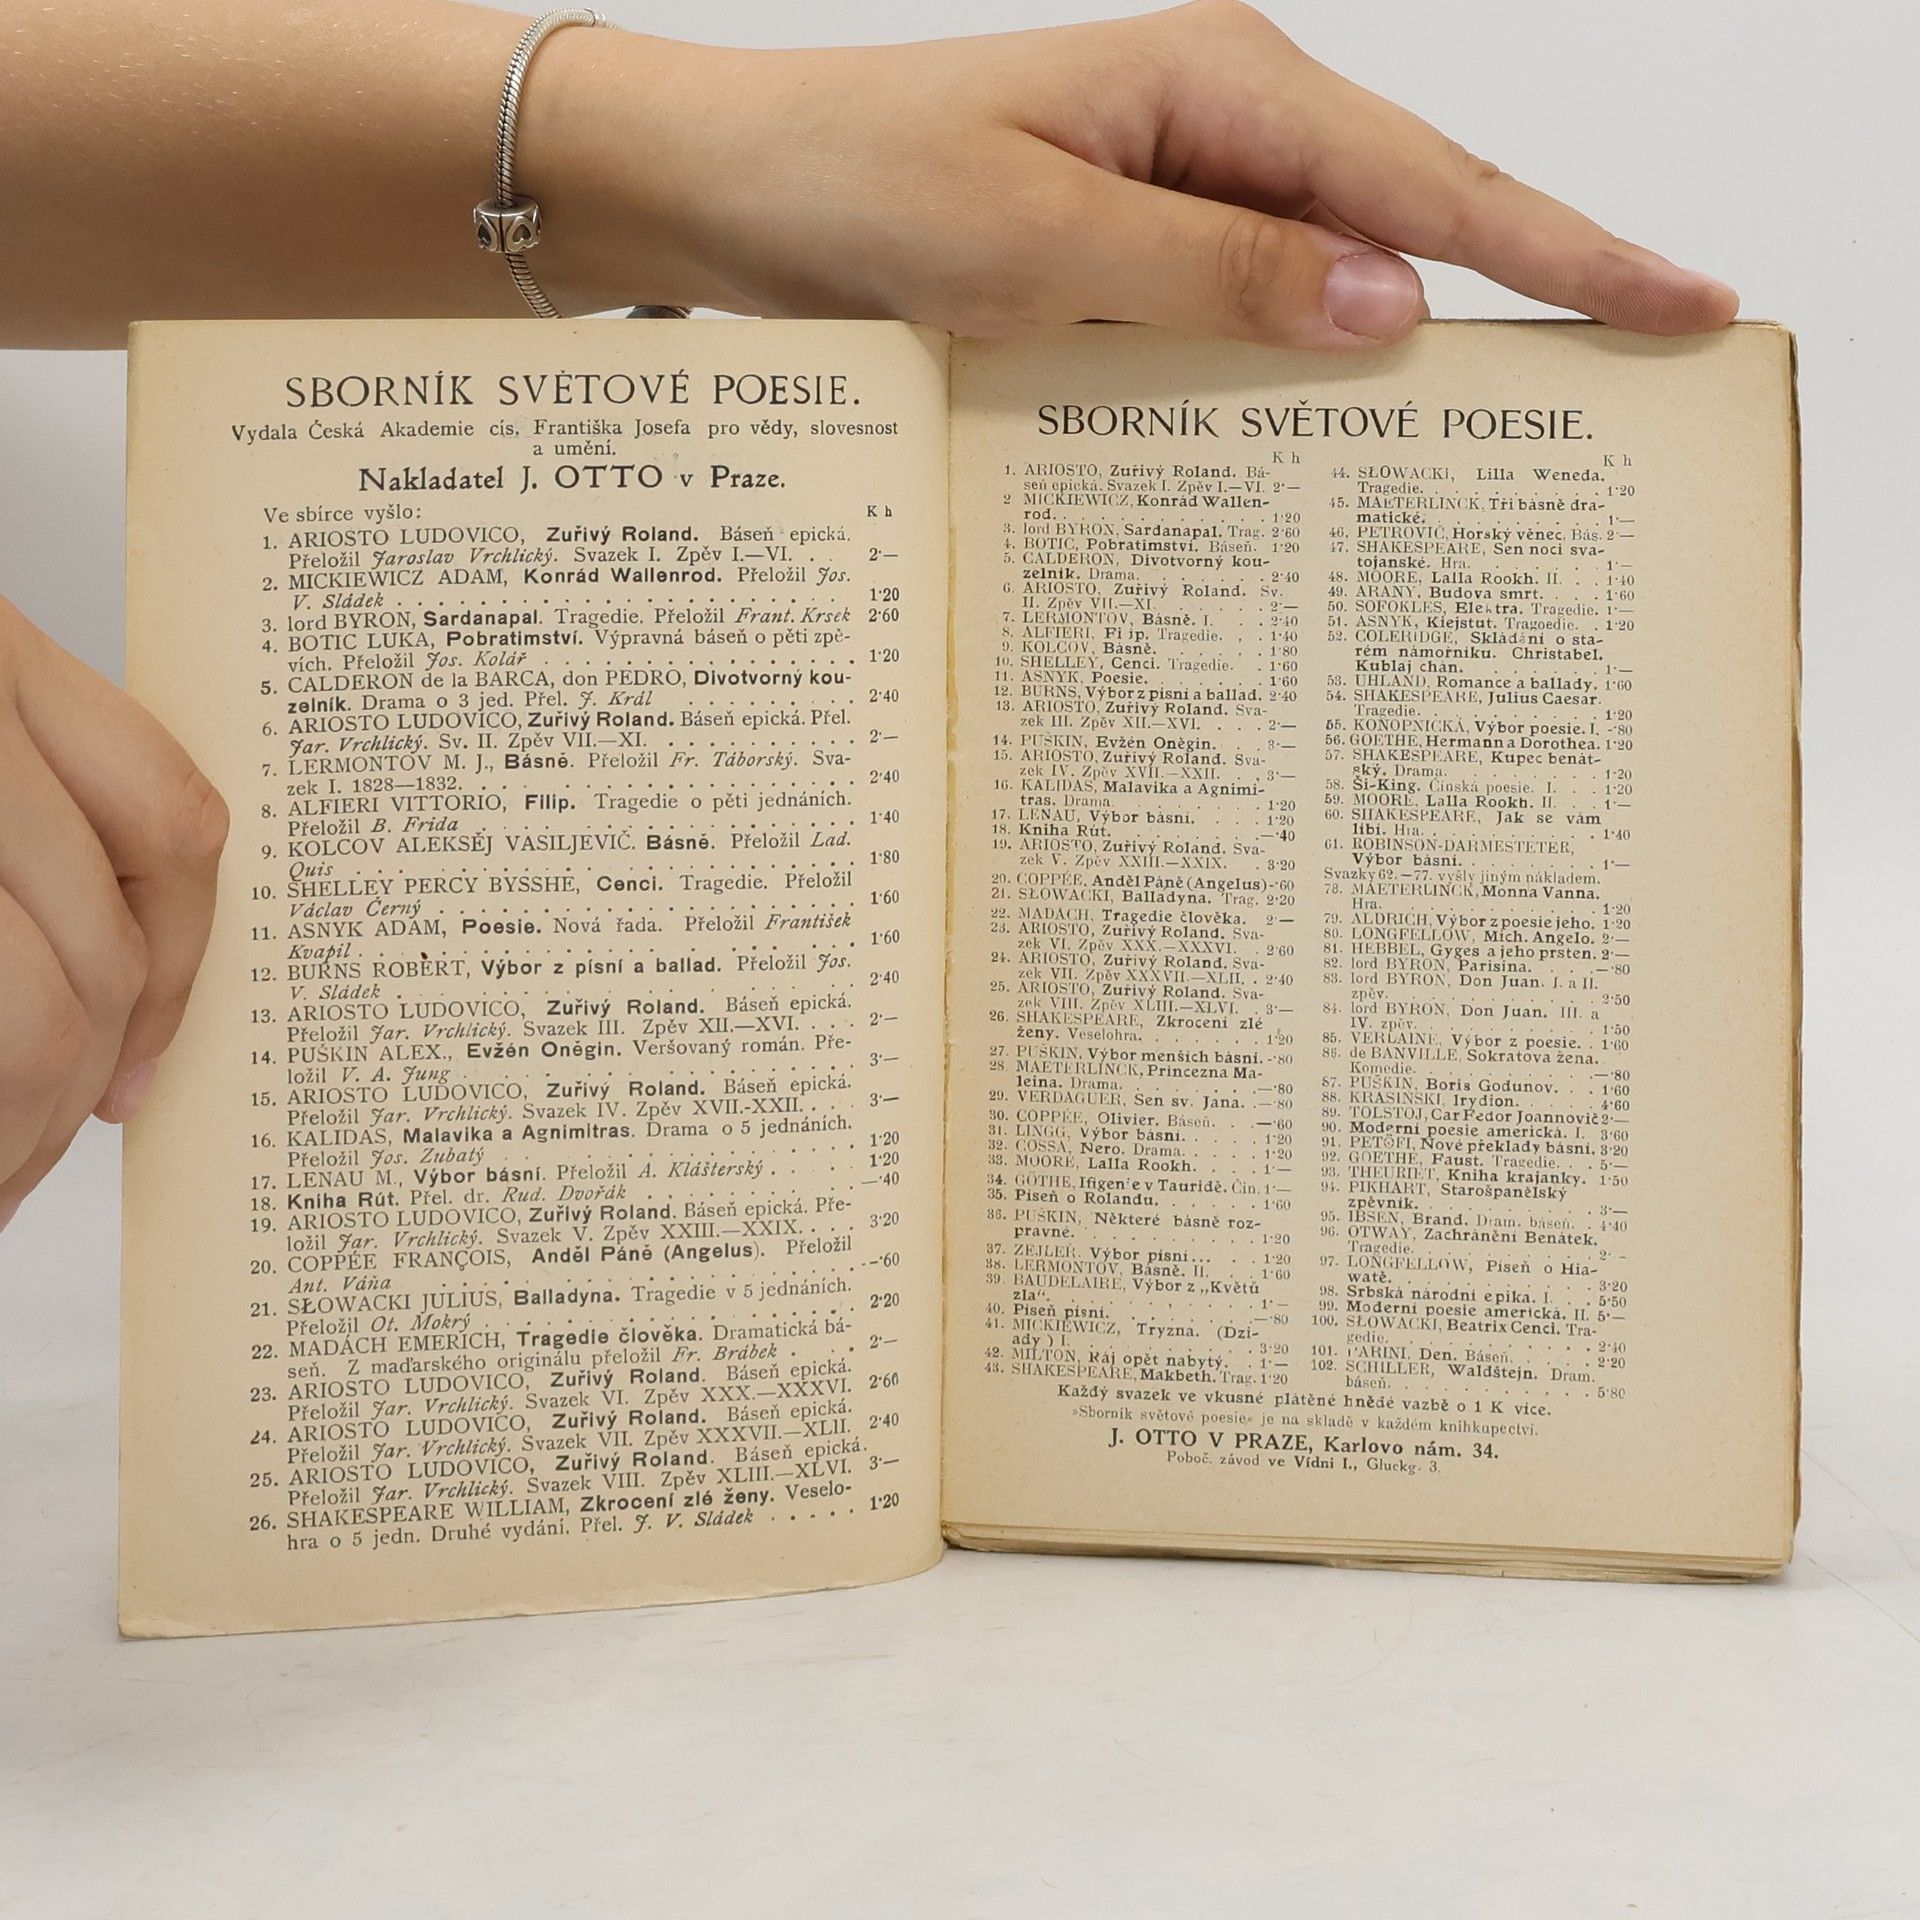 SBORNÍK SVĚTOVÉ POESIE.
Vydala Česká Akademie cís. Františka Josefa pro vědy, slovesnost
a umění.
Nakladatel J. OTTO v Praze.
Ve sbírce vyšlo: K h
1. ARIOSTO LUDOVICO, Zuřivý Roland. Báseň epická.
Přeložil Jaroslav Vrchlický. Svazek I. Zpěv I.—VI. . 2·—
2. MICKIEWICZ ADAM, Konrád Wallenrod. Přeložil Jos.
V. Sládek . . . 1·20
3. lord BYRON, Sardanapal. Tragedie. Přeložil Frant. Krsek 2·60
4. BOTIC LUKA, Pobratimství. Výpravná báseň o pěti zpě-
vích. Přeložil Jos. Kolář . . . 1·20
5. CALDERON de la BARCA, don PEDRO, Divotvorný kou-
zelník. Drama o 3 jed. Přel. J. Král 2·40
6. ARIOSTO LUDOVICO, Zuřivý Roland. Báseň epická. Přel.
Jar. Vrchlický. Sv. II. Zpěv VII.—XI. . . . 2·—
7. LERMONTOV M. J., Básně. Přeložil Fr. Táborský. Sva-
zek I. 1828—1832. . . . 2·40
8. ALFIERI VITTORIO, Filip. Tragedie o pěti jednáních.
Přeložil B. Frida . . . 1·40
9. KOLCOV ALEKSĚJ VASILJEVIČ. Básně. Přeložil Lad.
Quis . . . 1·80
10. SHELLEY PERCY BYSSHE, Cenci. Tragedie. Přeložil
Václav Černý . . . 1·60
11. ASNYK ADAM, Poesie. Nová řada. Přeložil František
Kvapil . . . 1·60
12. BURNS ROBERT, Výbor z písní a ballad. Přeložil Jos.
V. Sládek . . . 2·40
13. ARIOSTO LUDOVICO, Zuřivý Roland. Báseň epická.
Přeložil Jar. Vrchlický. Svazek III. Zpěv XII.—XVI. . . . 2·—
14. PUŠKIN ALEX., Evžén Oněgin. Veršovaný román. Pře-
ložil V. A. Jung . . . 3·—
15. ARIOSTO LUDOVICO, Zuřivý Roland. Báseň epická.
Přeložil Jar. Vrchlický. Svazek IV. Zpěv XVII.-XXII. . . . 3·—
16. KALIDAS, Malavika a Agnimitras. Drama o 5 jednáních.
Přeložil Jos. Zubatý . . . 1·20
17. LENAU M., Výbor básní. Přeložil A. Klášterský . . . . 1·20
18. Kniha Rút. Přel. dr. Rud. Dvořák . . . —·40
19. ARIOSTO LUDOVICO, Zuřivý Roland. Báseň epická. Pře-
ložil Jar. Vrchlický. Svazek V. Zpěv XXIII.—XXIX. . . . 3·20
20. COPPÉE FRANÇOIS, Anděl Páně (Angelus). Přeložil
Ant. Váňa . . . —·60
21. SŁOWACKI JULIUS, Balladyna. Tragedie v 5 jednáních.
Přeložil Ot. Mokrý . . . 2·20
22. MADÁCH EMERICH, Tragedie člověka. Dramatická bá-
seň. Z maďarského originálu přeložil Fr. Brábek . . 2·—
23. ARIOSTO LUDOVICO, Zuřivý Roland. Báseň epická.
Přeložil Jar. Vrchlický. Svazek VI. Zpěv XXX.—XXXVI. 2·60
24. ARIOSTO LUDOVICO, Zuřivý Roland. Báseň epická.
Přeložil Jar. Vrchlický. Svazek VII. Zpěv XXXVII.—XLII. 2·40
25. ARIOSTO LUDOVICO, Zuřivý Roland. Báseň epická.
Přeložil Jar. Vrchlický. Svazek VIII. Zpěv XLIII.—XLVI. 3·—
26. SHAKESPEARE WILLIAM, Zkrocení zlé ženy. Veselo-
hra o 5 jedn. Druhé vydání. Přel. J. V. Sládek . . . . . 1·20
SBORNÍK SVĚTOVÉ POESIE.
K h
1. ARIOSTO, Zuřivý Roland. Bá-
seň epická. Svazek I. Zpěv I.—VI. 2·—
2 MICKIEWICZ, Konrád Wallen-
rod. . . . 1·20
3. lord BYRON, Sardanapal. Trag. 2·60
4. BOTIC, Pobratimství. Báseň. 1·20
5. CALDERON, Divotvorný kou-
zelník. Drama. . . . 2·40
6. ARIOSTO, Zuřivý Roland. Sv.
II. Zpěv VII.—XI. . . . 2·—
7. LERMONTOV, Básně. I. . . . 2·40
8. ALFIERI, Filip. Tragedie. . . 1·40
9. KOLCOV, Básně. . . . 1·80
10. SHELLEY, Cenci. Tragedie. . 1·60
11. ASNYK, Poesie. . . . 1·60
12. BURNS, Výbor z písní a ballad. 2·40
13. ARIOSTO, Zuřivý Roland. Sva-
zek III. Zpěv XII.—XVI. . . . 2·—
14. PUŠKIN, Evžén Oněgin. . . 3·—
15. ARIOSTO, Zuřivý Roland. Sva-
zek IV. Zpěv XVII.—XXII. . . . 3·—
16. KALIDAS, Malavika a Agnimi-
tras. Drama. . . . 1·20
17. LENAU, Výbor básní. . . . 1·20
18. Kniha Rút. . . . —·40
19. ARIOSTO, Zuřivý Roland. Sva-
zek V. Zpěv XXIII.—XXIX. . 3·20
20. COPPÉE, Anděl Páně (Angelus) -·60
21. SŁOWACKI, Balladyna. Trag. 2·20
22. MADÁCH, Tragedie člověka. 2·—
23. ARIOSTO, Zuřivý Roland. Sva-
zek VI. Zpěv XXX.—XXXVI. . 2·60
24. ARIOSTO, Zuřivý Roland. Sva-
zek VII. Zpěv XXXVII.—XLII. . 2·40
25. ARIOSTO, Zuřivý Roland. Sva-
zek VIII. Zpěv XLIII.—XLVI. . 3·—
26. SHAKESPEARE, Zkrocení zlé
ženy. Veselohra. . . . 1·20
27. PUŠKIN, Výbor menších básní. -·80
28. MAETERLINCK, Princezna Ma-
leina. Drama. . . . —·80
29. VERDAGUER, Sen sv. Jana. . —·80
30. COPPÉE, Olivier. Báseň. . —·60
31. LINGG, Výbor básní. . . . 1·20
32. COSSA, Nero. Drama. . . . 1·20
33. MOORE, Lalla Rookh. . . . 1·—
34. GÖTHE, Ifigenie v Tauridě. Čin. 1·—
35. Píseň o Rolandu. . . . 1·60
36. PUŠKIN, Některé básně roz-
pravné. . . . 1·20
37. ZEJLER. Výbor písní... . . 1·20
38. LERMONTOV, Básně. II. . . 1·60
39. BAUDELAIRE, Výbor z „Květů
zla“. . . . 1·—
40. Píseň písní. . . . —·80
41. MICKIEWICZ, Tryzna. (Dzi-
ady ) I. . . . 3·20
42. MILTON, Ráj opět nabytý. . 1·—
43. SHAKESPEARE, Makbeth. Trag. 1·20
K h
44. SŁOWACKI, Lilla Weneda.
Tragedie. . . . 1·20
45. MAETERLINCK, Tři básně dra-
matické. . . . 1·—
46. PETROVIĆ, Horský věnec. Bás. 2·—
47. SHAKESPEARE, Sen noci sva-
tojanské. Hra. . . . 1·—
48. MOORE, Lalla Rookh. II. . . 1·40
49. ARANY, Budova smrt. . . . 1·60
50. SOFOKLES, Elektra. Tragedie. 1·—
51. ASNYK, Kiejstut. Tragoedie. . 1·20
52. COLERIDGE, Skládání o sta-
rém námořníku. Christabel.
Kublaj chán. . . . 1·—
53. UHLAND, Romance a ballady. 1·60
54. SHAKESPEARE, Julius Caesar.
Tragedie. . . . 1·20
55. KONOPNICKÁ, Výbor poesie. I. -·80
56. GOETHE, Hermann a Dorothea. 1·20
57. SHAKESPEARE, Kupec benát-
ský. Drama. . . . 1·20
58. Ši-King. Čínská poesie. I. . . 1·20
59. MOORE, Lalla Rookh. II. . . 1·—
60. SHAKESPEARE, Jak se vám
líbí. Hra. . . . 1·40
61. ROBINSON-DARMESTETER,
Výbor básní. . . . 1·—
Svazky 62.—77. vyšly jiným nákladem.
78. MAETERLINCK, Monna Vanna.
Hra. . . . 1·20
79. ALDRICH, Výbor z poesie jeho. 1·20
80. LONGFELLOW, Mich. Angelo. 2·—
81. HEBBEL, Gyges a jeho prsten. 2·—
82. lord BYRON, Parisina. . . . —·80
83. lord BYRON, Don Juan. I. a II.
zpěv. . . . 2·50
84. lord BYRON, Don Juan. III. a
IV. zpěv. . . . 1·50
85. VERLAINE, Výbor z poesie. . 1·60
86. de BANVILLE, Sokratova žena.
Komedie. . . . —·80
87. PUŠKIN, Boris Godunov. . . 1·60
88. KRASIŃSKI, Irydion. . . . 4·60
89. TOLSTOJ, Car Fedor Joannovič 2·—
90. Moderní poesie americká. I. 3·60
91. PETŐFI, Nové překlady básní. 3·20
92. GOETHE, Faust. Tragedie. . . 5·—
93. THEURIET, Kniha krajanky. . 1·50
94. PIKHART, Starošpanělský
zpěvník. . . . 3·—
95. IBSEN, Brand. Dram. báseň. . 4·40
96. OTWAY, Zachránění Benátek.
Tragedie. . . . 2·—
97. LONGFELLOW, Píseň o Hia-
watě. . . . 3·20
98. Srbská národní epika. I. . . 5·50
99. Moderní poesie americká. II. 5·—
100. SŁOWACKI, Beatrix Cenci. Tra-
gedie. . . . 2·40
101. PARINI, Den. Báseň. . . . 2·20
102. SCHILLER, Waldštejn. Dram.
báseň. . . . 5·80
Každý svazek ve vkusné plátěné hnědé vazbě o 1 K více.
»Sborník světové poesie« je na skladě v každém knihkupectví.
J. OTTO V PRAZE, Karlovo nám. 34.
Poboč. závod ve Vídni I., Gluckg. 3.